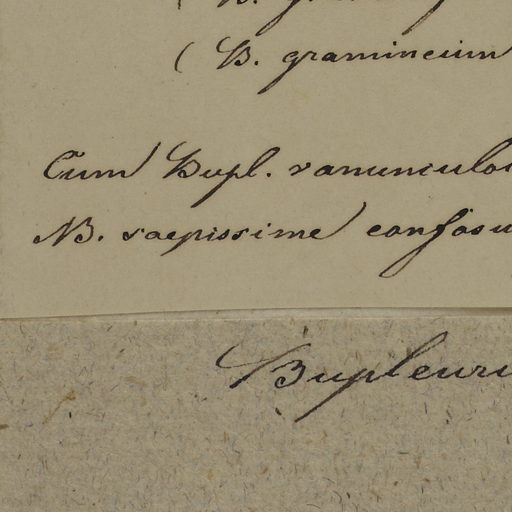 (B. gramineum
Cum Bupl. ranunculo
NB. saepissime confosu
Bupleuru